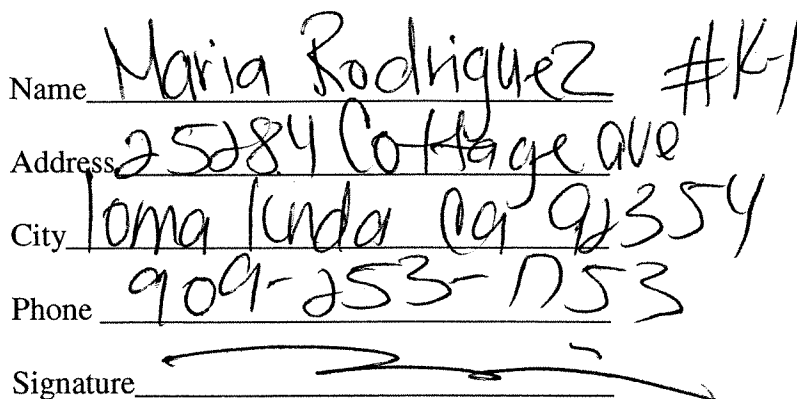 Name Maria Rodriguez #K-1
Address 25284 Cottage ave
City loma linda Ca 92354
Phone 909-253-1753
Signature